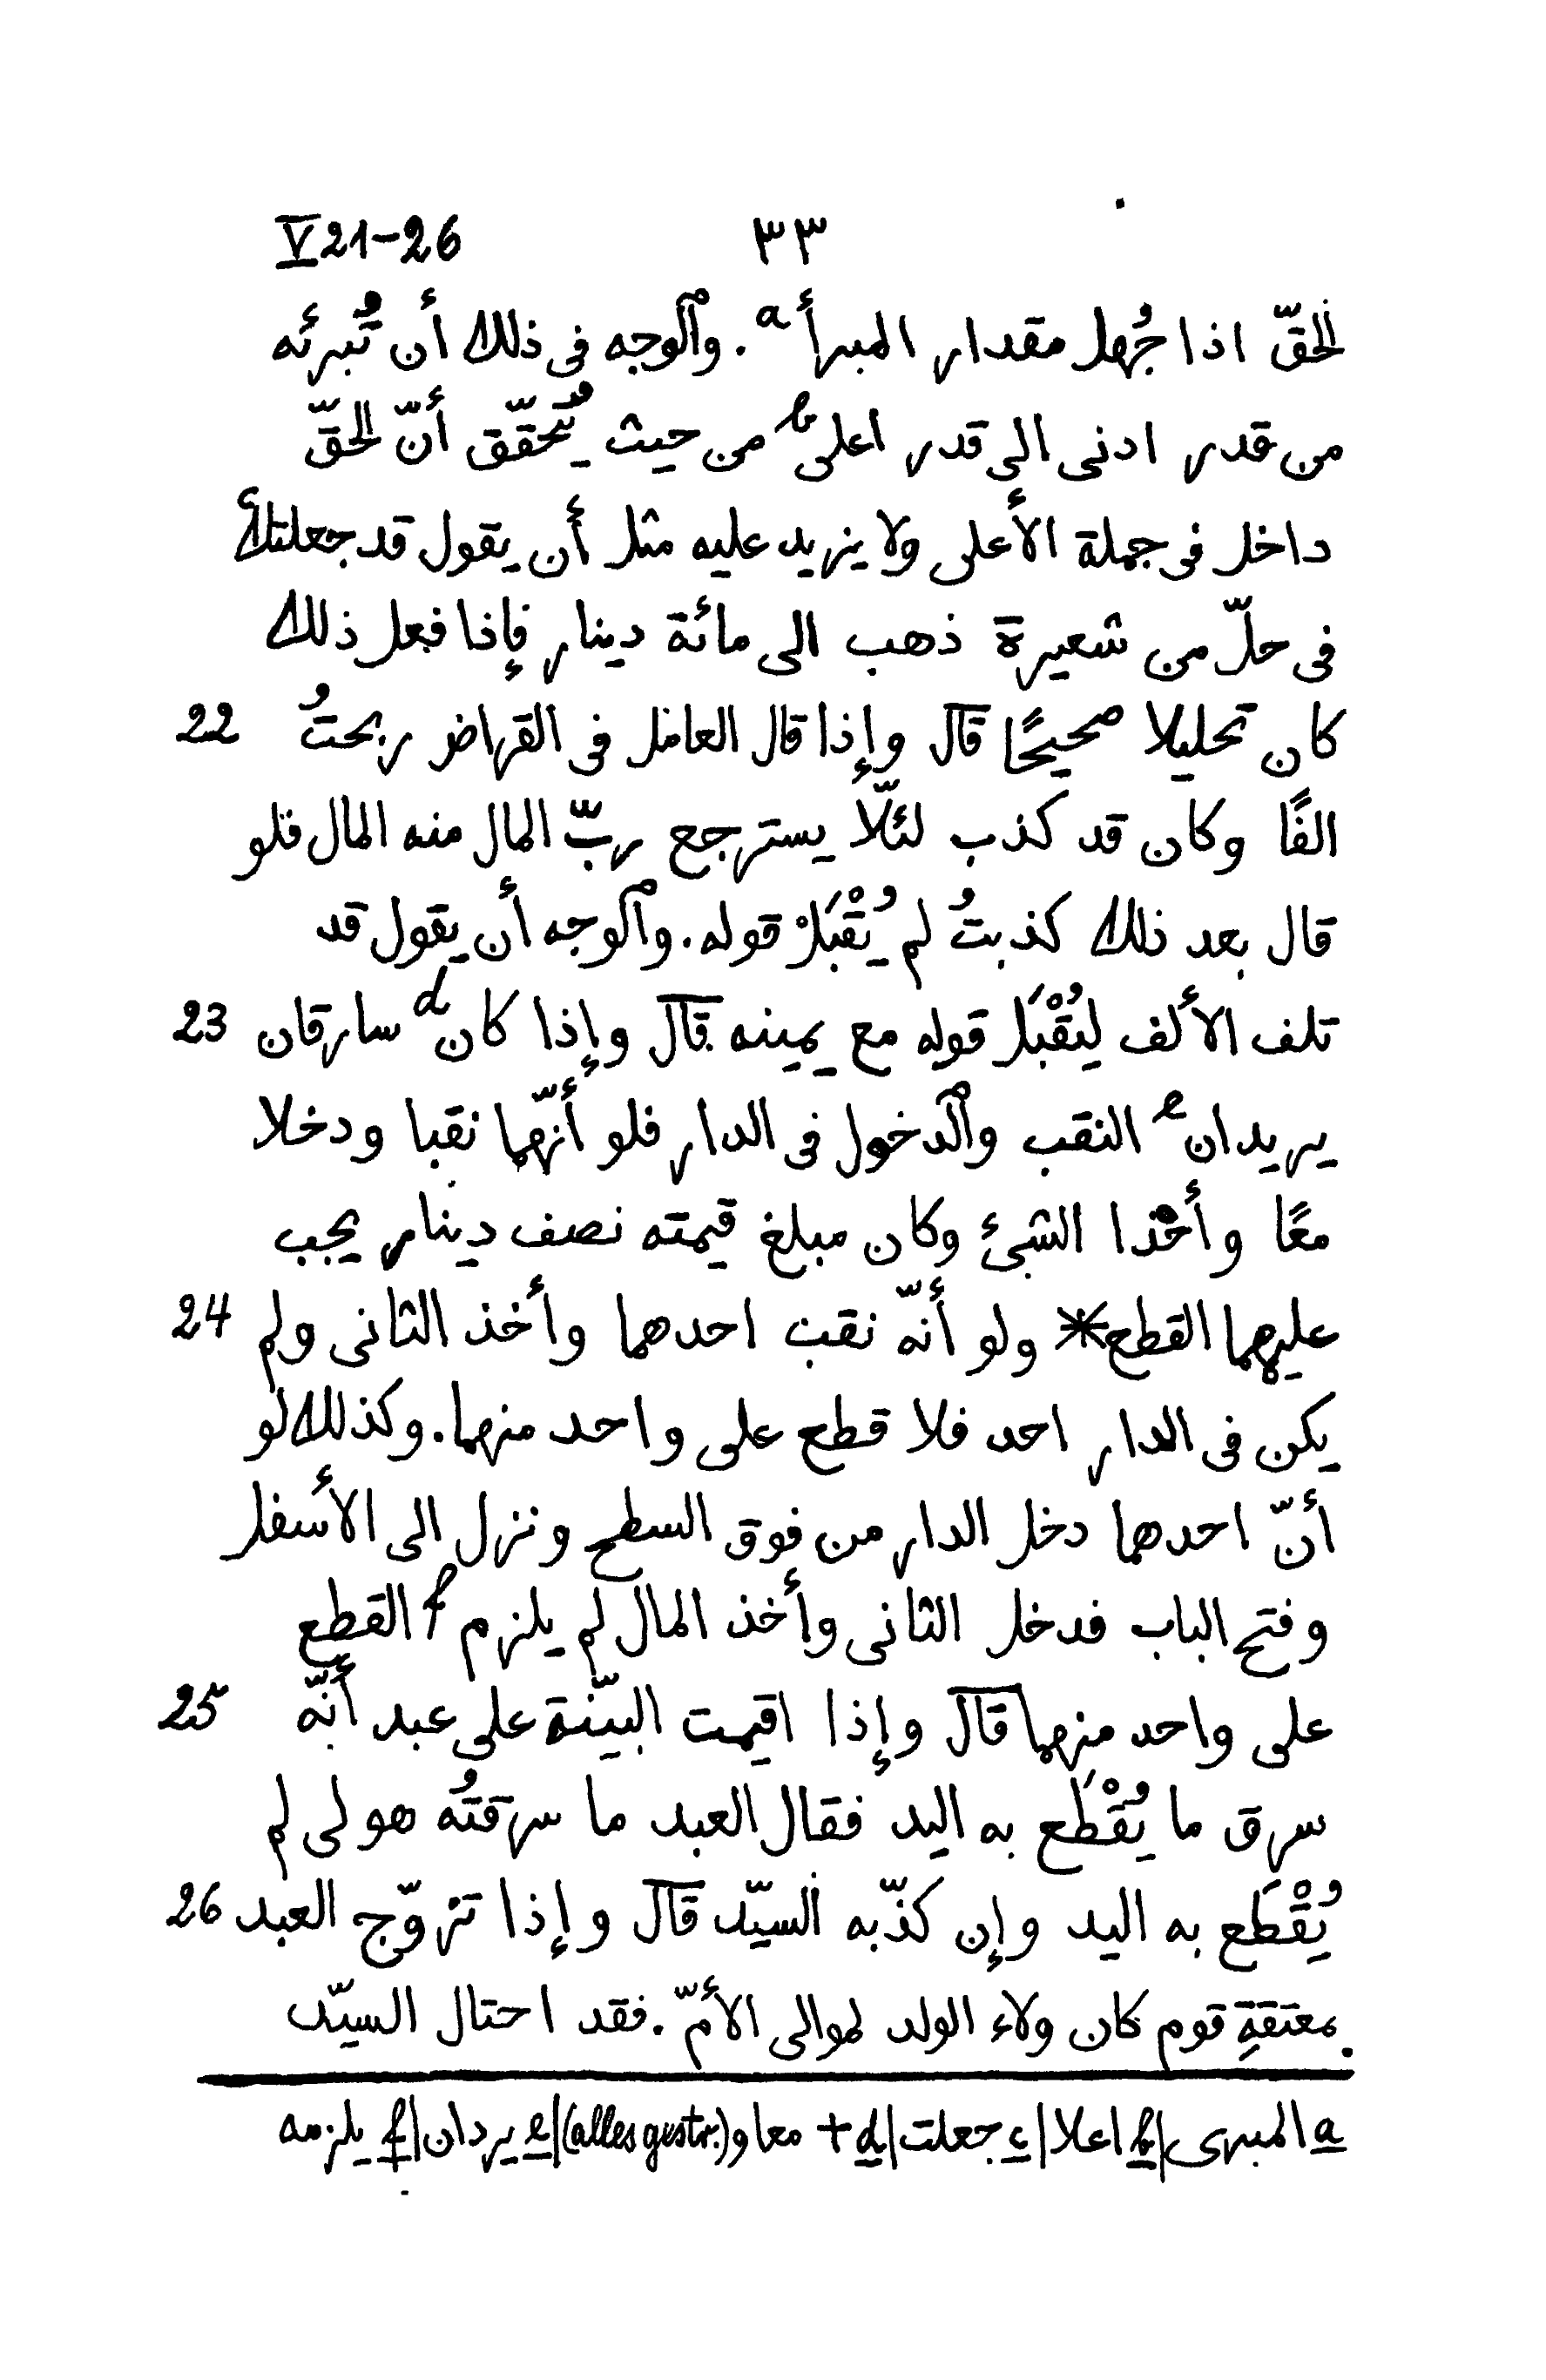 V 21-26 ٣٣
الحقّ اذا جُهل مقدار المبرأ a. وٱلوجه فى ذلك أن تُبرئه
من قدر ادنى الى قدر اعلى b من حيث يُتحقّق أنّ الحقّ
داخل فى جملة الأعلى ولا يزيد عليه مثل أن يقول قد جعلتك c
فى حلّ من شعيرة ذهب الى مائة دينار فإذا فعل ذلك
كان تحليلا صحيحًا قال وإذا قال العامل فى القراض ربحتُ 22
الفًا وكان قد كذب لئلّا يسترجع ربّ المال منه المال فلو
قال بعد ذلك كذبتُ لم يُقْبَلْ قوله. وٱلوجه أن يقول قد
تلف الألف ليُقْبَل قوله مع يمينه قال وإذا كان d سارقان 23
يريدان e النقب وٱلدخول فى الدار فلو أنّهما نقبا ودخلا
معًا وأخذا الشىء وكان مبلغ قيمته نصف دينار يجب
عليهما القطع * ولو أنّه نقب احدهما وأخذ الثانى ولم 24
يكن فى الدار احد فلا قطع على واحد منهما. وكذلك لو
أنّ احدهما دخل الدار من فوق السطح ونزل الى الأسفل
وفتح الباب فدخل الثانى وأخذ المال لم يلزم f القطع
على واحد منهما قال وإذا اقيمت البيّنة على عبد أنّه 25
سرق ما يُقْطَع به اليد فقال العبد ما سرقتُه هو لى لم
يُقْطَع به اليد وإن كذّبه السيّد قال وإذا تزوّج العبد 26
بمعتقةِ قوم كان ولاء الولد لموالى الأمّ. فقد احتال السيّد
a المبرى | b اعلا | c جعلت | d + معا و (alles gestr.) | e يردان | f يلزمه